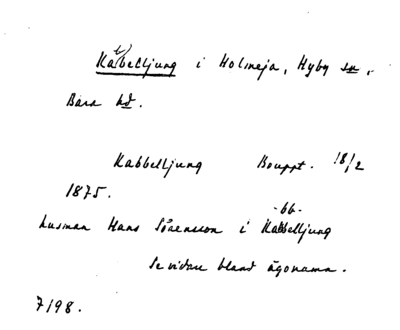 Kabbelljung i Holmeja, Hyby sn,
Bara hd.
Kabbelljung Bouppt. 18/2
1875.
-bb-
husman Hans Sörensson i Kabbelljung
Se vidare bland ägonamn.
7198.